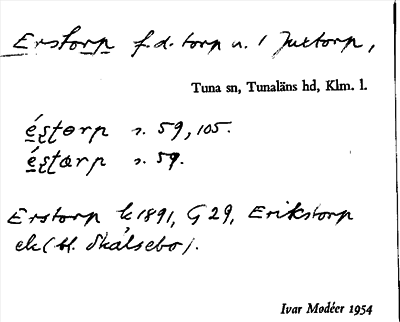 Erstorp f.d. torp u. 1 Juxtorp,
Tuna sn, Tunaläns hd, Klm. l.
s. 59, 105.
s. 59.
Erstorp k 1891, G 29, Erikstorp
ek (bl. Skälsebo).
Ivar Modéer 1954